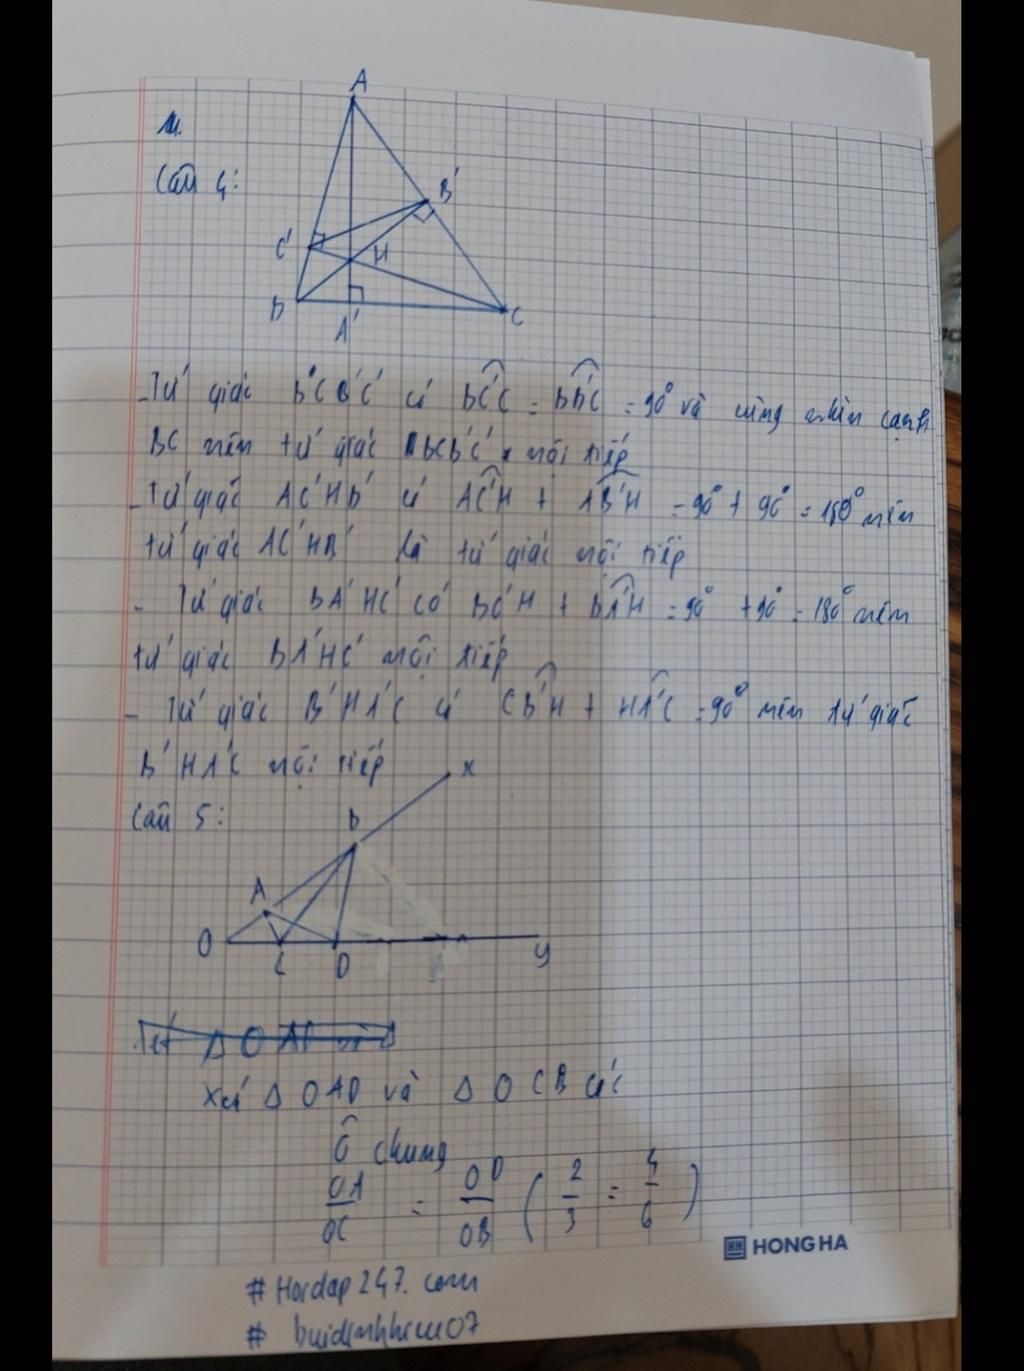 A
Câu 4:
B'
C'
H
B
A'
C
- Tứ giác BCB'C' có BC'C = BB'C = 90° và cùng nhìn cạnh
BC nên tứ giác BCB'C' nội tiếp
- Tứ giác AC'HB' có AC'H + AB'H = 90° + 90° = 180° nên
tứ giác AC'HB' là tứ giác nội tiếp
- Tứ giác BA'HC' có BC'H + BA'H = 90° + 90° = 180° nên
tứ giác BA'HC' nội tiếp
- Tứ giác B'HA'C có CB'H + HA'C = 90° nên tứ giác
B'HA'C nội tiếp
x
Câu 5:
B
A
O
C
D
y
Xét Δ OAD
Xét Δ OAD và Δ OCB có:
Ô chung
OA/OC = OD/OB (2/3 = 4/6)
HH HONG HA
# Hoidap247.com